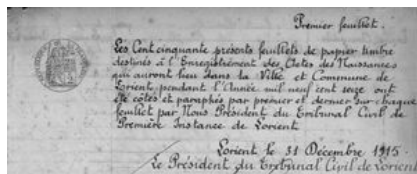 Premier feuillet.
Les Cent cinquante presents feuillets de papier timbre
destinés à l'Enregistrement des Actes des Naissances
qui auront lieu dans la Ville et Commune de
Lorient, pendant l'Année mil neuf cent seize ont
été cotés et paraphés par premier et dernier sur chaque
feuillet par Nous Président du Tribunal Civil de
Première Instance de Lorient
Lorient le 31 Décembre 1915.
Le Président du Tribunal Civil de Lorient